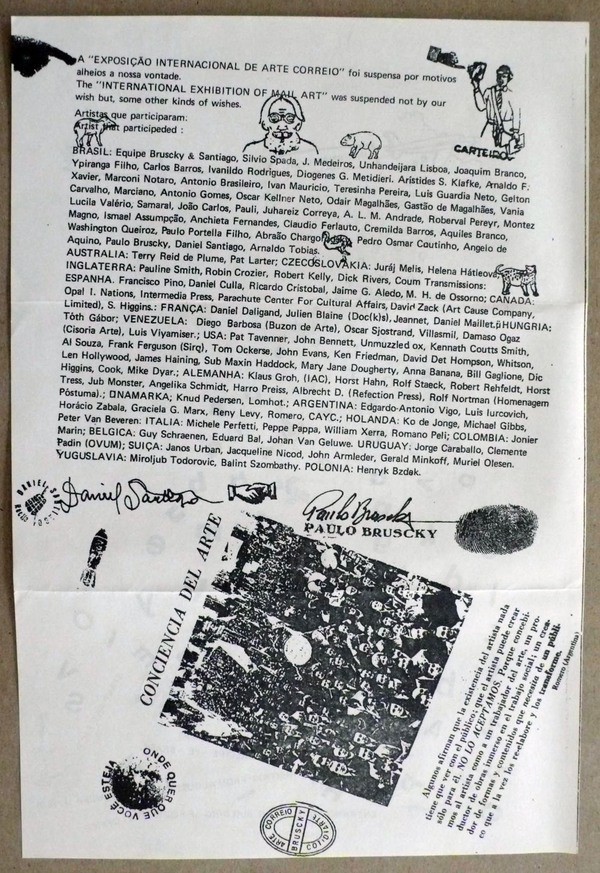 A "EXPOSIÇÃO INTERNACIONAL DE ARTE CORREIO" foi suspensa por motivos
alheios a nossa vontade.
The "INTERNATIONAL EXHIBITION OF MAIL ART" was suspended not by our
wish but, some other kinds of wishes.
Artistas que participaram:
Artist that participeded :
CARTEIRO
BRASIL: Equipe Bruscky & Santiago, Silvio Spada, J. Medeiros, Unhandeijara Lisboa, Joaquim Branco,
Ypiranga Filho, Carlos Barros, Ivanildo Rodrigues, Diogenes G. Metidieri. Aristides S. Klafke, Arnaldo F.
Xavier, Marconi Notaro, Antonio Brasileiro, Ivan Mauricio, Teresinha Pereira, Luis Guardia Neto, Gelton
Carvalho, Marciano, Antonio Gomes, Oscar Kellner Neto, Odair Magalhães, Gastão de Magalhães, Vania
Lucila Valério, Samaral, João Carlos, Pauli, Juhareiz Correya, A. L. M. Andrade, Roberval Pereyr, Montez
Magno, Ismael Assumpção, Anchieta Fernandes, Claudio Ferlauto, Cremilda Barros, Aquiles Branco,
Washington Queiroz, Paulo Portella Filho, Abraão Chargo Pedro Osmar Coutinho, Angelo de
Aquino, Paulo Bruscky, Daniel Santiago, Arnaldo Tobias.
AUSTRALIA: Terry Reid de Plume, Pat Larter; CZECOSLOVÁKIA: Juráj Melis, Helena Hátleova
INGLATERRA: Pauline Smith, Robin Crozier, Robert Kelly, Dick Rivers, Coum Transmissions:
ESPANHA. Francisco Pino, Daniel Culla, Ricardo Cristobal, Jaime G. Aledo, M. H. de Ossorno; CANADA:
Opal I. Nations, Intermedia Press, Parachute Center For Cultural Affairs, David Zack (Art Cause Company,
Limited), S. Higgins.: FRANÇA: Daniel Daligand, Julien Blaine (Doc(k)s), Jeannet, Daniel Maillet. HUNGRIA:
Tóth Gábor; VENEZUELA: Diego Barbosa (Buzon de Arte), Oscar Sjostrand, Villasmil, Damaso Ogaz
(Cisoria Arte), Luis Viyamiser.; USA: Pat Tavenner, John Bennett, Unmuzzled ox, Kennath Coutts Smith,
Al Souza, Frank Ferguson (Sirq), Tom Ockerse, John Evans, Ken Friedman, David Det Hompson, Whitson,
Len Hollywood, James Haining, Sub Maxin Haddock, Mary Jane Dougherty, Anna Banana, Bill Gaglione, Dic
Higgins, Cook, Mike Dyar.; ALEMANHA: Klaus Groh, (IAC), Horst Hahn, Rolf Staeck, Robert Rehfeldt, Horst
Tress, Jub Monster, Angelika Schmidt, Harro Preiss, Albrecht D. (Refection Press), Rolf Nortman (Homenagem
Póstuma).; DNAMARKA; Knud Pedersen, Lomhot.; ARGENTINA: Edgardo-Antonio Vigo, Luis Iurcovich,
Horácio Zabala, Graciela G. Marx, Reny Levy, Romero, CAYC.; HOLANDA: Ko de Jonge, Michael Gibbs,
Peter Van Beveren: ITALIA: Michele Perfetti, Peppe Pappa, William Xerra, Romano Peli; COLOMBIA: Jonier
Marin; BELGICA: Guy Schraenen, Eduard Bal, Johan Van Geluwe. URUGUAY: Jorge Caraballo, Clemente
Padin (OVUM); SUIÇA: Janos Urban, Jacqueline Nicod, John Armleder, Gerald Minkoff, Muriel Olesen.
YUGUSLAVIA: Miroljub Todorovic, Balint Szombathy. POLONIA: Henryk Bzdak.
Daniel Santiago
Paulo Bruscky
PAULO BRUSCKY
CONCIENCIA DEL ARTE
Algunos afirman que la existencia del artista nada
tiene que ver con el público; que el artista puede crear
sólo para él. NO LO ACEPTAMOS. Porque concebi-
mos al artista como a un trabajador del arte, un pro-
ductor de obras inmerso en el trabajo social; un crea-
dor de formas y contenidos que necesita de un públi-
co que a la vez los reelabore y los transforme.
Romero (Argentina)
ONDE QUER QUE VOCE ESTEJA
ARTE CORREIO
BRUSCKY